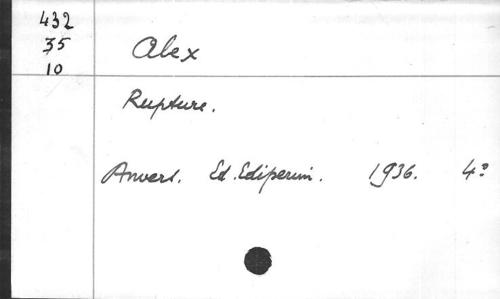 432
35
10
Alex
Rupture.
Anvers. Ed. Ediperim. 1936. 4º